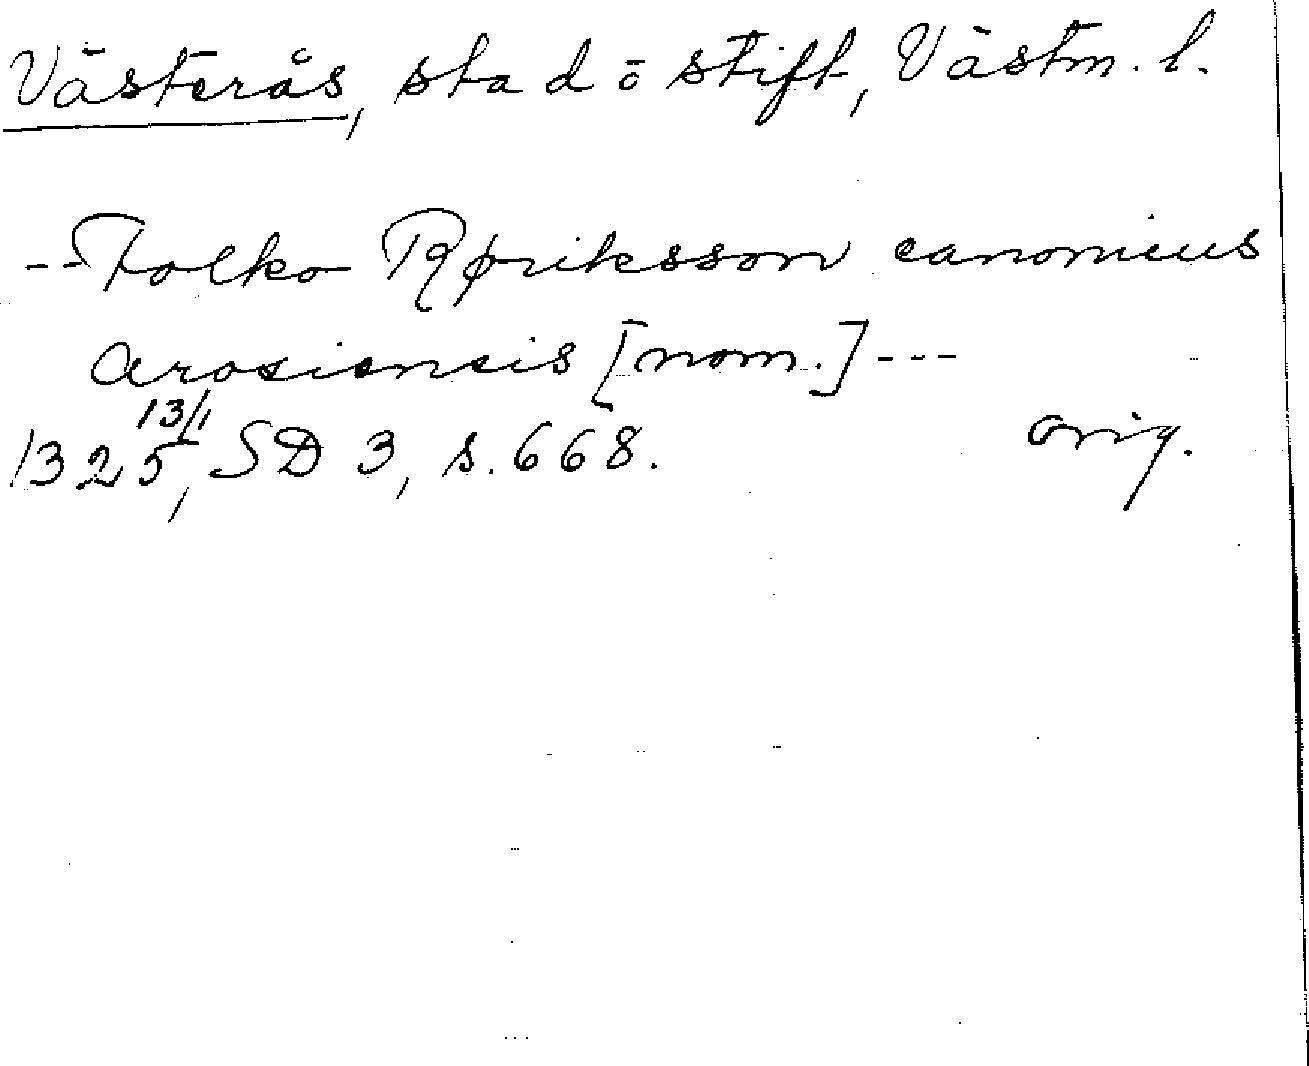 Västerås, stad o stift, Västm. l.
--Folko Røriksson canonicus
arosiensis [nom.]---
1325 13/1, SD 3, s. 668. Orig.